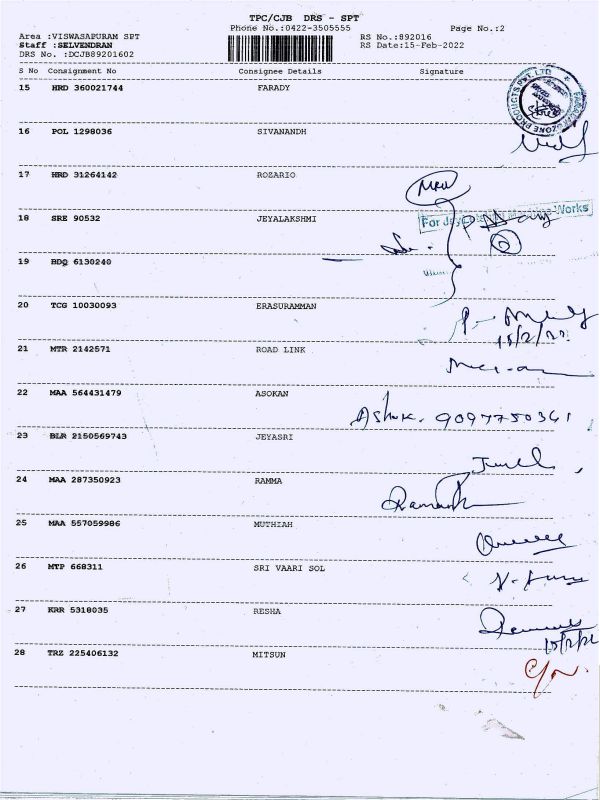 TPC/CJB DRS - SPT
Phone No.:0422-3505555 Page No.:2
Area :VISWASAPURAM SPT RS No.:892016
Staff :SELVENDRAN RS Date:15-Feb-2022
DRS No. :DCJB89201602
S No Consignment No Consignee Details Signature
15 HRD 360021744 FARADY
16 POL 1298036 SIVANANDH
17 HRD 31264142 ROZARIO
18 SRE 90532 JEYALAKSHMI
For Works
19 BDQ 6130240
20 TCG 10030093 ERASURAMMAN
15/2/22
21 MTR 2142571 ROAD LINK
22 MAA 564431479 ASOKAN
Ashok. 9097750361
23 BLR 2150569743 JEYASRI
24 MAA 287350923 RAMMA
25 MAA 557059986 MUTHIAH
26 MTP 668311 SRI VAARI SOL
27 KRR 5318035 RESHA
28 TRZ 225406132 MITSUN